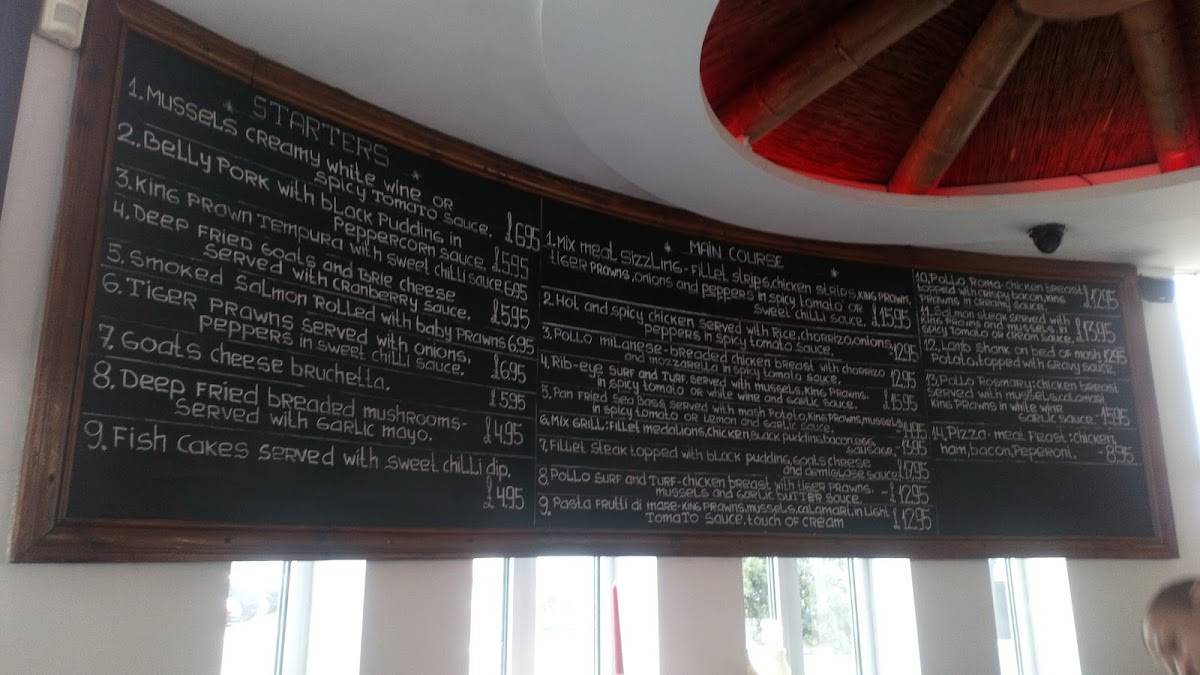 STARTERS
1. Mussels creamy white wine or
spicy tomato sauce. £6.95
2. Belly pork with black pudding in
peppercorn sauce. £5.95
3. King prawn tempura with sweet chilli sauce 6.95
4. Deep fried goats and brie cheese
served with cranberry sauce. £5.95
5. Smoked salmon rolled with baby prawns 6.95
6. Tiger prawns served with onions,
peppers in sweet chilli sauce. £6.95
7. Goats cheese bruchetta. £5.95
8. Deep fried breaded mushrooms-
served with garlic mayo. £4.95
9. Fish cakes served with sweet chilli dip.
£4.95
MAIN COURSE
1. Mix meat sizzling - fillet strips, chicken strips, king prawn,
tiger prawns, onions and peppers in spicy tomato or
sweet chilli sauce. £15.95
2. Hot and spicy chicken served with rice, chorrizo, onions,
peppers in spicy tomato sauce. 12.95
3. Pollo milanese - breaded chicken breast with chorrizo
and mozzarella in spicy tomato sauce. 12.95
4. Rib-eye surf and turf. served with mussels, king prawns.
in spicy tomato or white wine and garlic sauce. £15.95
5. Pan fried sea bass served with mash potato, king prawns, mussels
in spicy tomato or lemon and garlic sauce.
6. Mix grill: fillet medalions, chicken, black pudding, bacon, egg
sausage. - 13.95
7. Fillet steak topped with black pudding, goats cheese
and demiglose sauce £17.95
8. Pollo surf and turf - chicken breast with tiger prawns.
mussels and garlic butter sauce. - £12.95
9. Pasta frutti di mare - king prawns, mussels, calamari, in light
tomato sauce. touch of cream £12.95
10. Pollo Roma - chicken breast
served with crispy bacon, king
prawns in cream sauce. £12.95
11. Salmon steak served with
king prawns and mussels in
spicy tomato or cream sauce. £13.95
12. Lamb shank on bed of mash 12.95
potato, topped with gravy sauce.
13. Pollo Rosmary: chicken breast
served with mussels, calamari
king prawns in white wine
garlic sauce. 15.95
14. Pizza - meat feast: chicken,
ham, bacon, peperoni. - 8.95